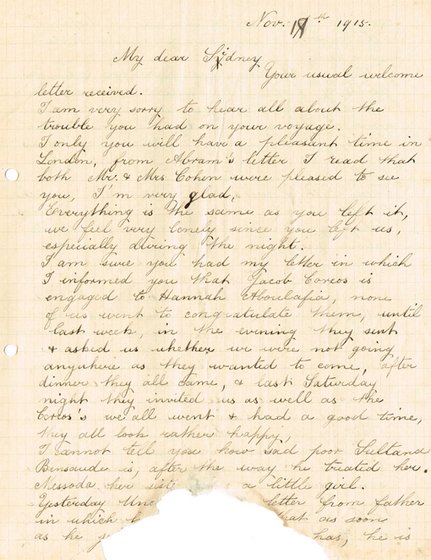 Nov. 18th 1915.
My dear Sydney
Your usual welcome
letter received.
I am very sorry to hear all about the
trouble you had on your voyage.
I only you will have a pleasant time in
London, from Abram's letter I read that
both Mr. & Mrs Cohen were pleased to see
you, I'm very glad,
Everything is the same as you left it,
we feel very lonely since you left us,
especially during the night.
I am sure you had my letter in which
I informed you that Jacob Corcos is
engaged to Hannah Aboulafia, none
of us went to congratulate them, until
last week, in the evening they sent
& asked us whether we were not going
anywhere as they wanted to come, after
dinner they all came, & last Saturday
night they invited us as well as the
Corcos's we all went & had a good time,
they all look rather happy.
I cannot tell you how sad poor Sultana
Bensaude is, after the way he treated her.
Messoda her a little girl.
Yesterday letter from father
in which that as soon
as he has, he is